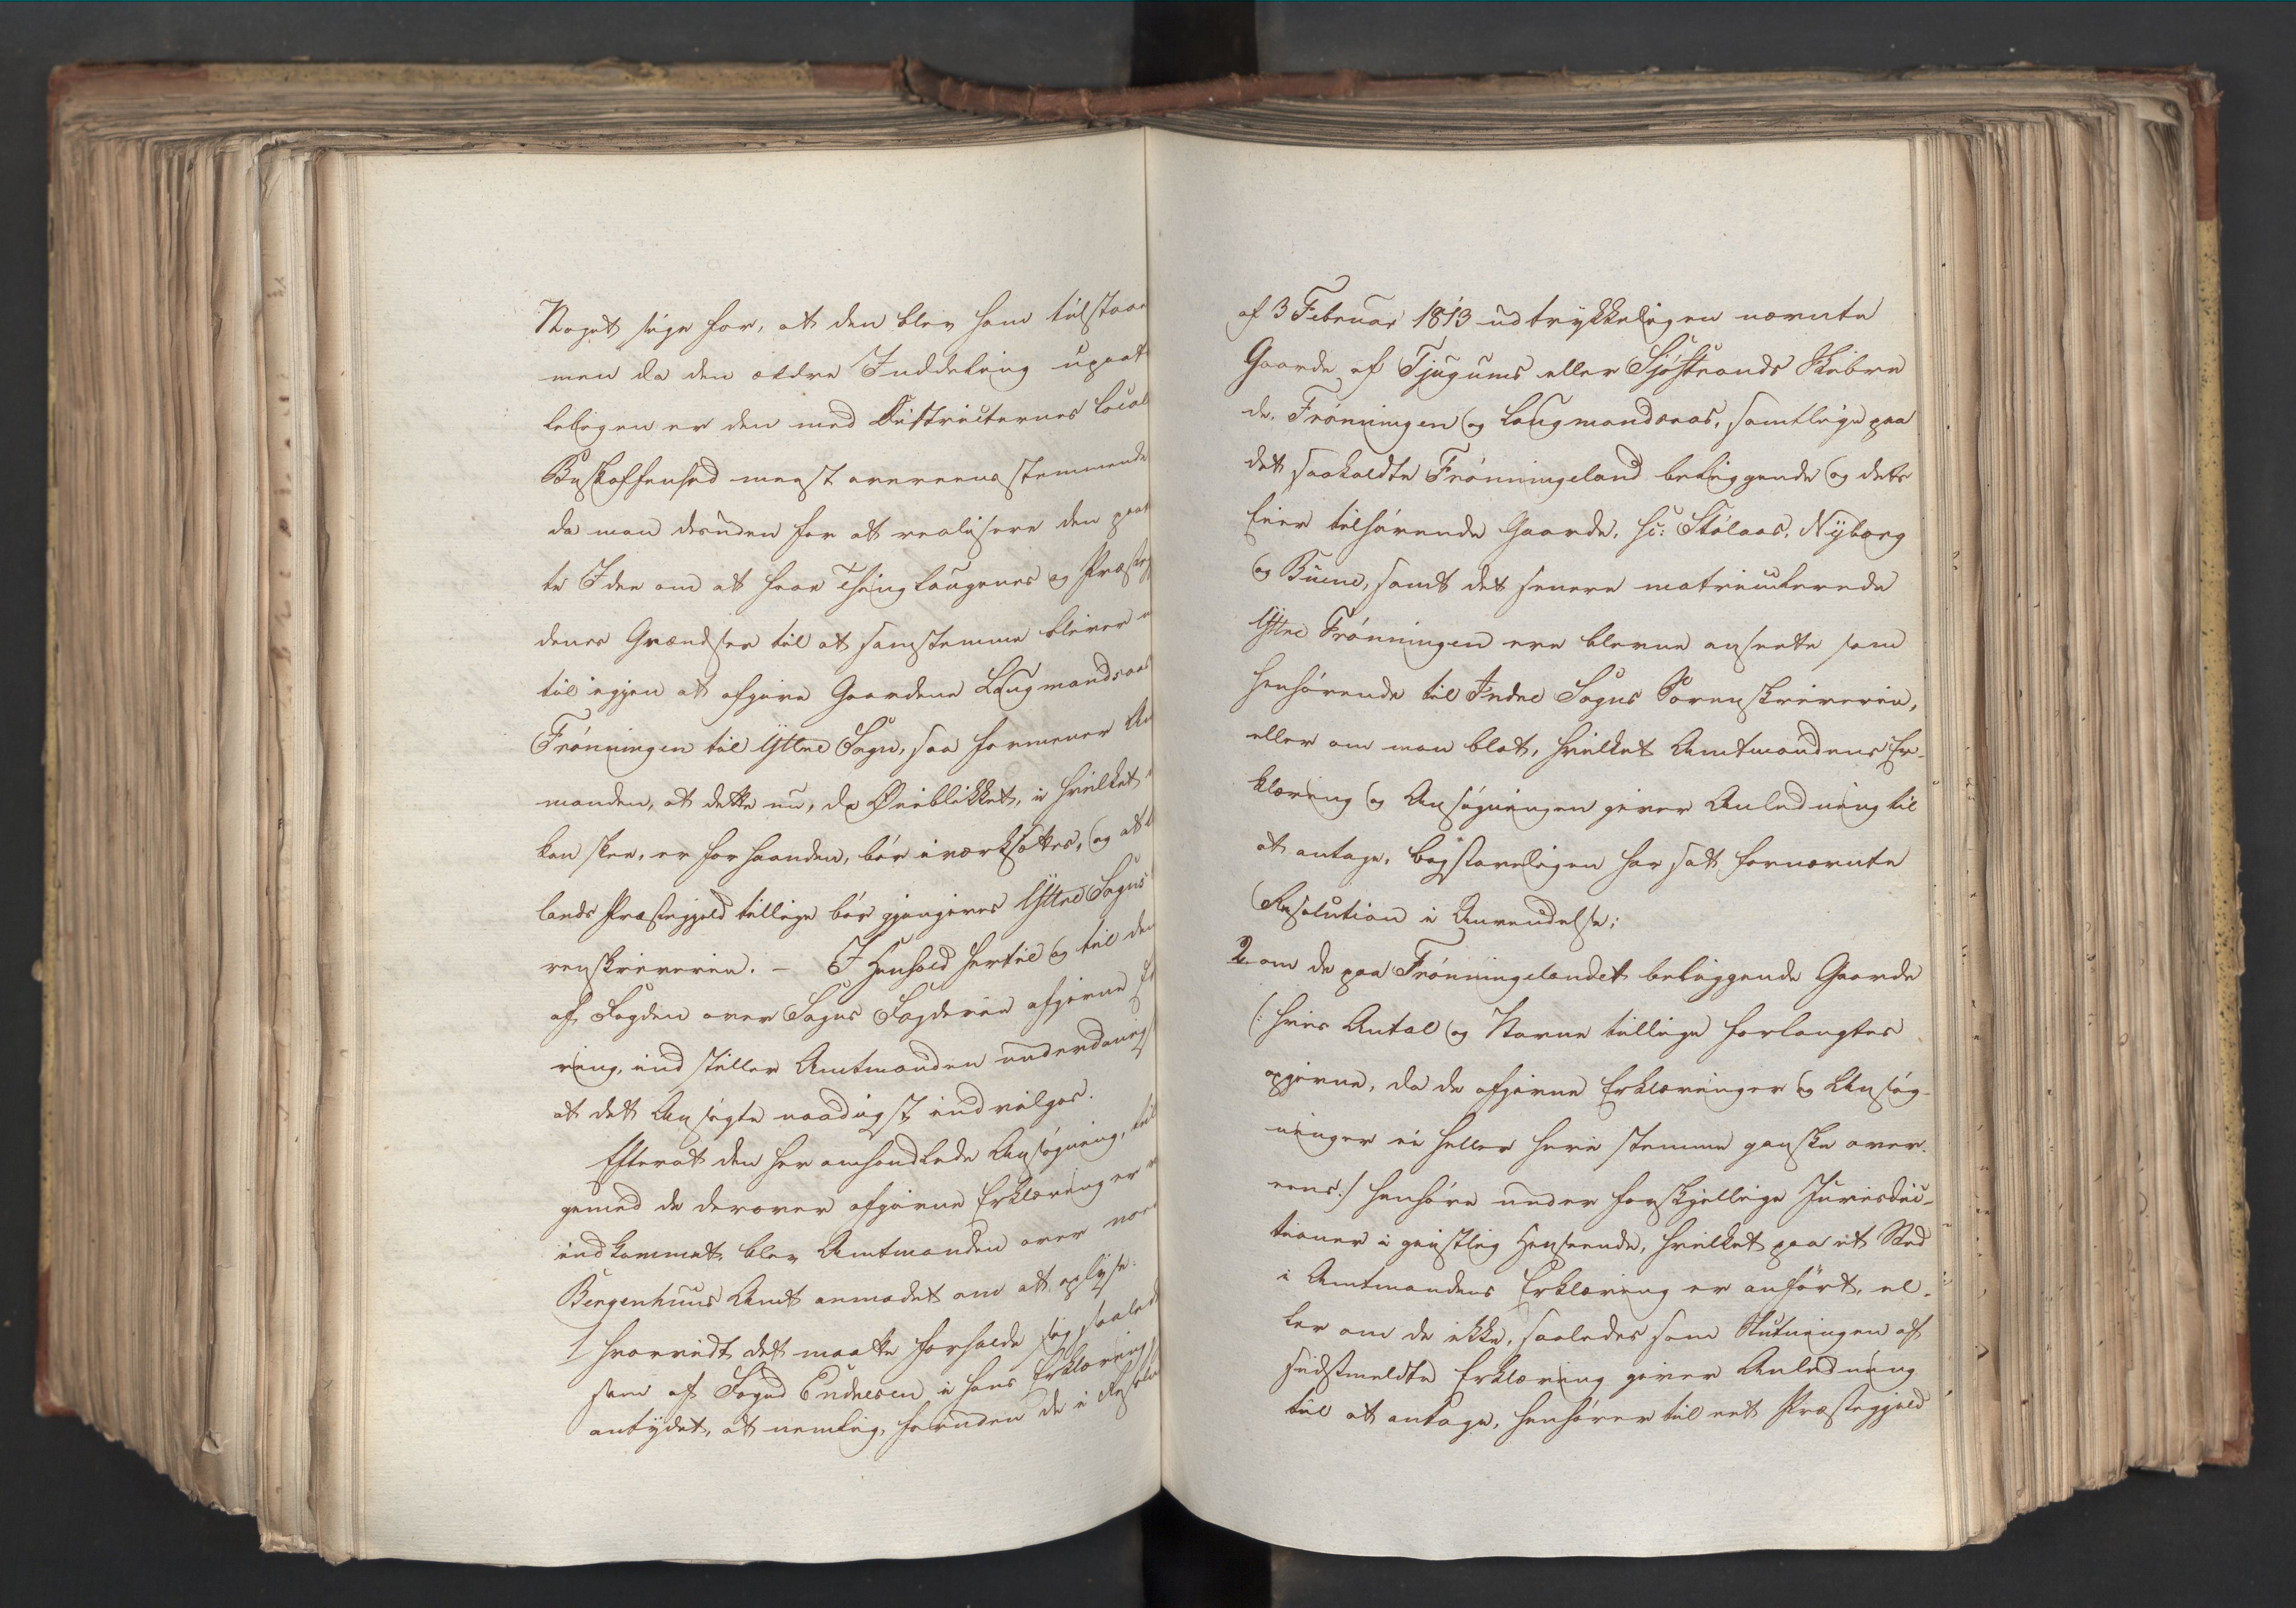 Noget sige for, at den blev ham tilstaae
men da den ældre Inddeling upaat
leligen er den med Districternes local
Beskaffenhed meest overeensstemmende
da man desuden for at realisere den paat
te Idee om at faae Thinglaugenes og Præstegj
denes Grændser til at samstemme bliver
til igjen at afgive Gaardene Laugmandsaas
Frønningen til Yttre Sogn, saa formener Am
manden, at dette nu, da Øieblikket, i hvilket
kan skee, er for haanden, bør iværksættes, og at
lands Præstegjeld tillige bør gjengives Yttre Sogns
renskriverie. – I Henhold hertil og til den
af Fogden over Sogns Fogderie afgivne Er
ring, indstiller Amtmanden underdanig
at det Ansøgte naadigst indvilges.
Efterat den her omhandlede Ansøgning, til
gemed de derover afgivne Erklæringer
indkommet, blev Amtmanden over nor
Bergenhuus Amt anmodet om at oplyse:
1 hvorvidt det maatte forholde sig, saaled
som af Foged Endresen i hans Erklæring
antydet, at nemlig, foruden de i Resolu
af 3 Februar 1813 udtrykkeligen nævnte
Gaarde af Tjugums eller Sjøstrands Skibre
de, Frønningen og Laugmandsaas, samtlige paa
det saakaldte Frønningeland beliggende og dets
Eier tilhørende Gaarde, sc: Stølaas, Nyborg
og Buene, samt det senere matriculerede
Yttre Frønningen ere blevne ansete som
henhørende til Indre Sogns Sorenskriverie,
eller om man blot, hvilket Amtmandens Er-
klæring og Ansøgningen giver Anledning til
at antage, bogstaveligen har sat fornævnte
Resolution i Anvendelse;
2. om de paa Frønningelandet beliggende Gaarde
(: hvis Antal og Navne tillige forlangtes
opgivne, da de afgivne Erklæringer og Ansøg-
ninger ei heller heri stemme ganske over-
eens:) henhøre under forskjellige Jurisdic-
tioner i geistlig Henseende, hvilket paa et Sted
i Amtmandens Erklæring er anført, el-
ler om de ikke, saaledes som Slutningen af
sidstmeldte Erklæring giver Anledning
til at antage, henhører til eet Præstegjeld